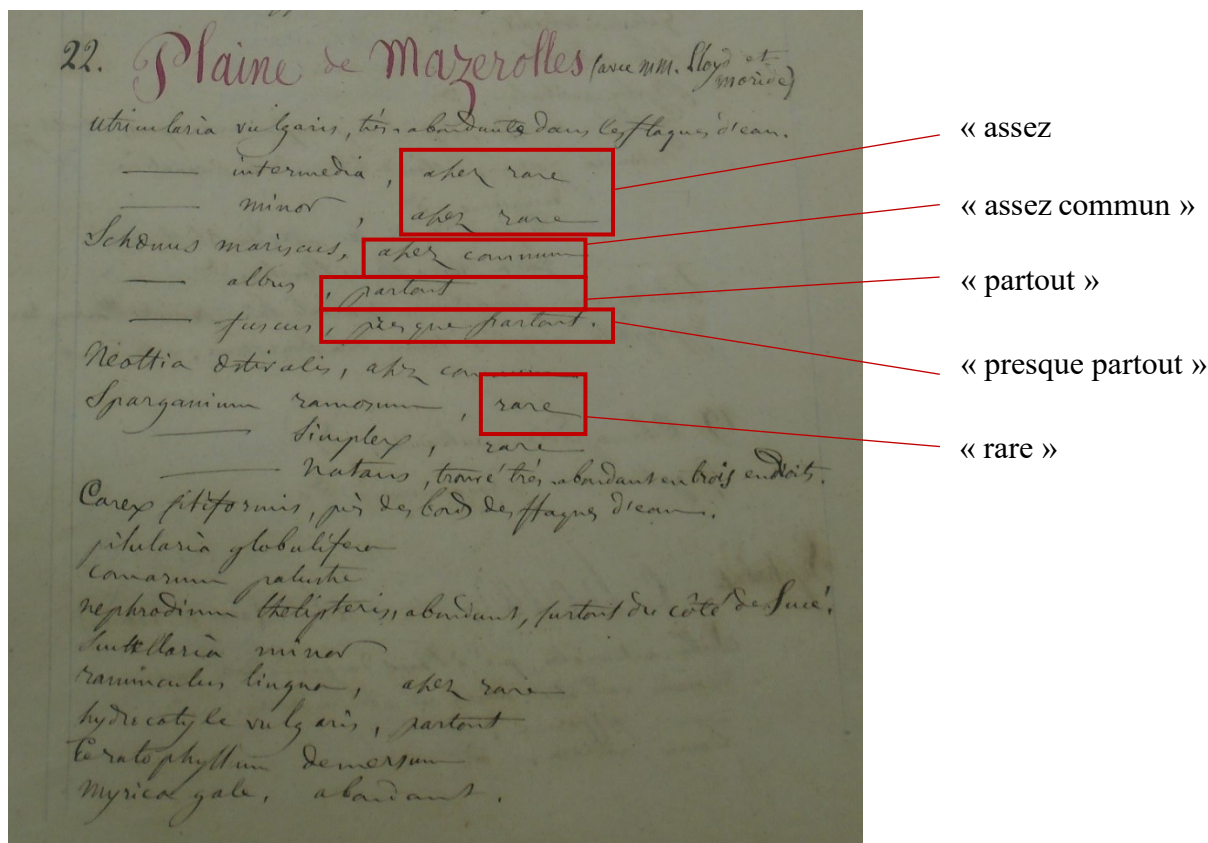 22. Plaine de Mazerolles (avec MM. Lloyd et moride)
utricularia vulgaris, très abondante dans les flaques d'eau.
—— intermedia, assez rare
—— minor, assez rare
Schœnus mariscus, assez commun
—— albus, partout
—— fuscus, presque partout.
Neottia œstivalis, assez commun
Sparganium ramosum, rare
—— simplex, rare
—— natans, trouvé très abondant en trois endroits.
Carex filiformis, près des bords des flaques d'eau.
pilularia globulifera
comarum palustre
nephrodium thelipteris, abondant, surtout du côté de Sucé.
Scutellaria minor
ranunculus lingua, assez rare
hydrocotyle vulgaris, partout
Ceratophyllum demersum
myrica gale, abondant.
« assez
« assez commun »
« partout »
« presque partout »
« rare »